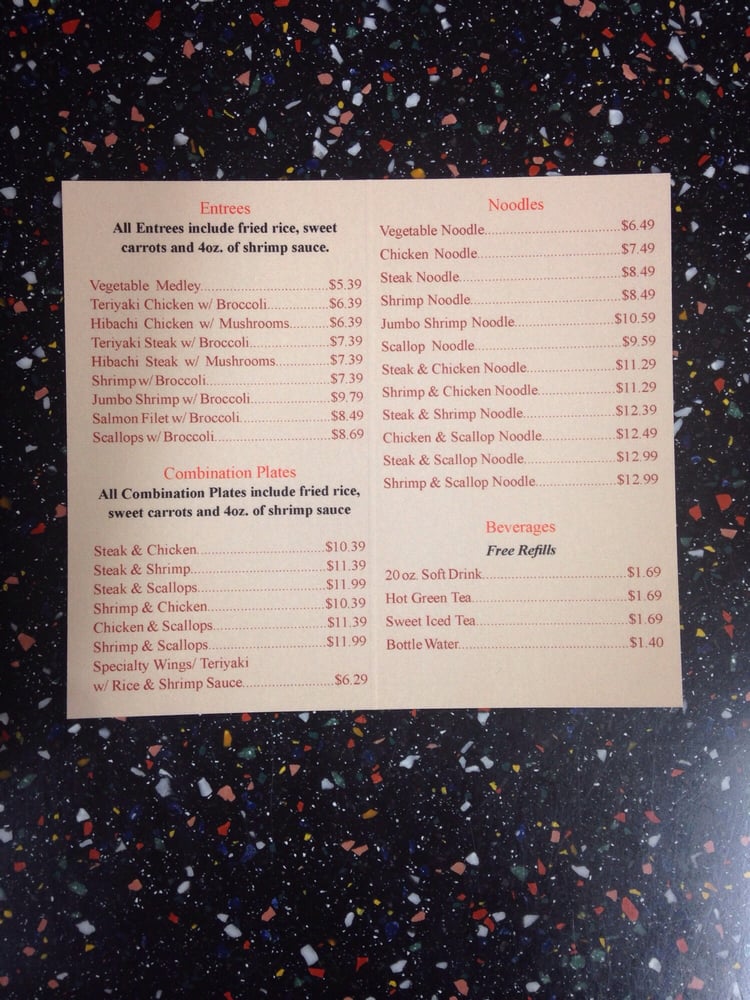 Entrees
All Entrees include fried rice, sweet
carrots and 4oz. of shrimp sauce.
Vegetable Medley $5.39
Teriyaki Chicken w/ Broccoli $6.39
Hibachi Chicken w/ Mushrooms $6.39
Teriyaki Steak w/ Broccoli $7.39
Hibachi Steak w/ Mushrooms $7.39
Shrimp w/ Broccoli $7.39
Jumbo Shrimp w/ Broccoli $9.79
Salmon Filet w/ Broccoli $8.49
Scallops w/ Broccoli $8.69
Combination Plates
All Combination Plates include fried rice,
sweet carrots and 4oz. of shrimp sauce
Steak & Chicken $10.39
Steak & Shrimp $11.39
Steak & Scallops $11.99
Shrimp & Chicken $10.39
Chicken & Scallops $11.39
Shrimp & Scallops $11.99
Specialty Wings/ Teriyaki
w/ Rice & Shrimp Sauce $6.29
Noodles
Vegetable Noodle $6.49
Chicken Noodle $7.49
Steak Noodle $8.49
Shrimp Noodle $8.49
Jumbo Shrimp Noodle $10.59
Scallop Noodle $9.59
Steak & Chicken Noodle $11.29
Shrimp & Chicken Noodle $11.29
Steak & Shrimp Noodle $12.39
Chicken & Scallop Noodle $12.49
Steak & Scallop Noodle $12.99
Shrimp & Scallop Noodle $12.99
Beverages
Free Refills
20 oz. Soft Drink $1.69
Hot Green Tea $1.69
Sweet Iced Tea $1.69
Bottle Water $1.40